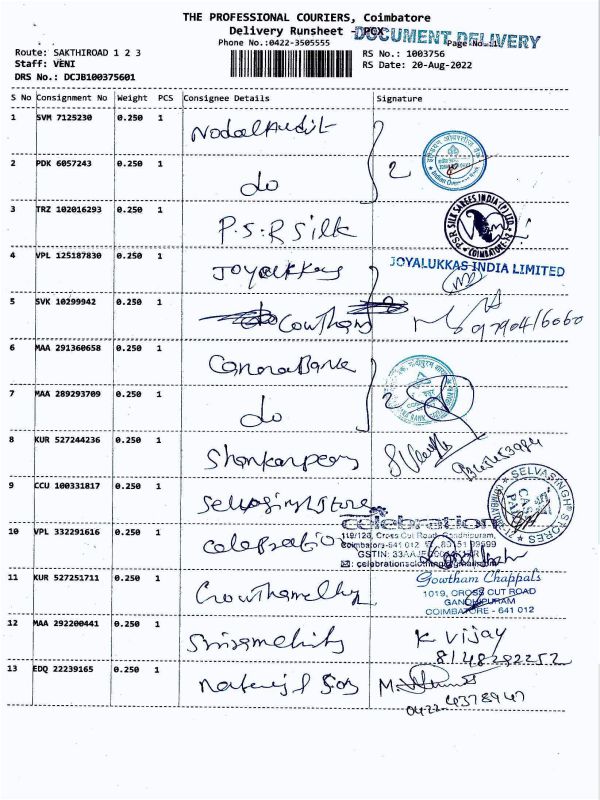 THE PROFESSIONAL COURIERS, Coimbatore
Delivery Runsheet - PCX
DOCUMENT DELIVERY
Phone No.:0422-3505555
Page No.:1
Route: SAKTHIROAD 1 2 3
RS No.: 1003756
Staff: VENI
RS Date: 20-Aug-2022
DRS No.: DCJB100375601
S No Consignment No Weight PCS Consignee Details Signature
1 SVM 7125230 0.250 1 Nodal Audit
2 PDK 6057243 0.250 1 do 2
3 TRZ 102016293 0.250 1 P.S.R Silk
PSR SILK SAREES INDIA (P) LTD.
COIMBATORE-12
4 VPL 125187830 0.250 1 Joyalukkas
JOYALUKKAS INDIA LIMITED
5 SVK 10299942 0.250 1 Gowtham
6 MAA 291360658 0.250 1 Canara Bank
7 MAA 289293709 0.250 1 do 2
8 KUR 527244236 0.250 1
9 CCU 100331817 0.250 1
SELVASINGH STORES
CASH PAID
10 VPL 332291616 0.250 1 celebration
celebration
119/120, Cross Cut Road, Gandhipuram,
Coimbatore-641 012
GSTIN:
11 KUR 527251711 0.250 1
Gowtham Chappals
1019, CROSS CUT ROAD
GANDHIPURAM
COIMBATORE - 641 012
12 MAA 292200441 0.250 1
K Vijay
8148292252
13 EDQ 22239165 0.250 1
0422 4378947